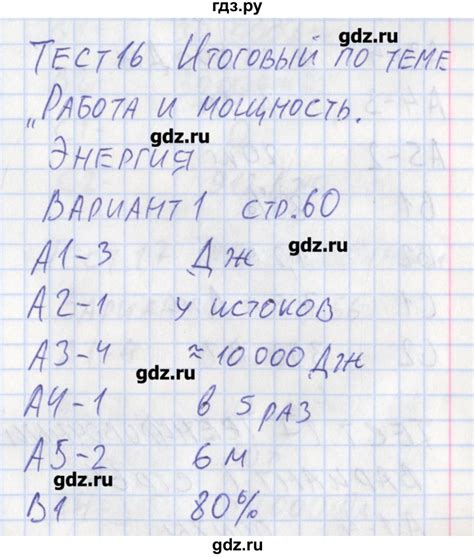 гдз.ру
Тест 16 Итоговый по теме
gdz.ru
„Работа и мощность.
gdz.ru
Энергия
Вариант 1 стр. 60
gdz.ru
gdz.ru
А1-3 Дж
А2-1 у истоков
А3-4 ≈ 10 000 Дж
gdz.ru
А4-1 в 5 раз
gdz.ru
А5-2 6 м
gdz.ru
В1 80%
gdz.ru